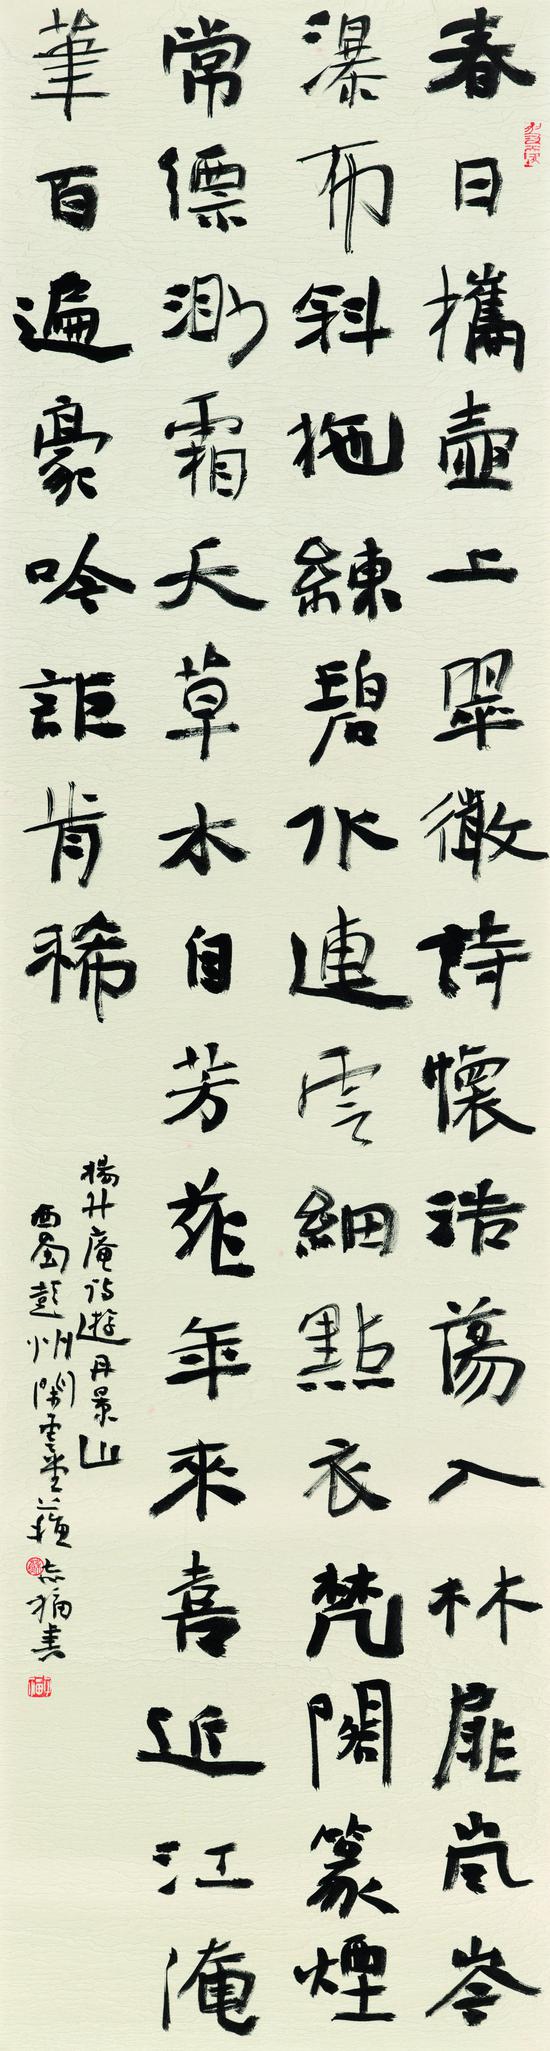 春日攜壺上翠微詩懷浩蕩入林扉嵐岑
瀑布斜拖練碧水連雲細點衣梵閣篆煙
常縹渺霜天草木自芳菲年來喜近江淹
筆百遍豪吟詎肯稀
楊升庵詩遊丹景山
西蜀彭州閑雲堂蘇志福書